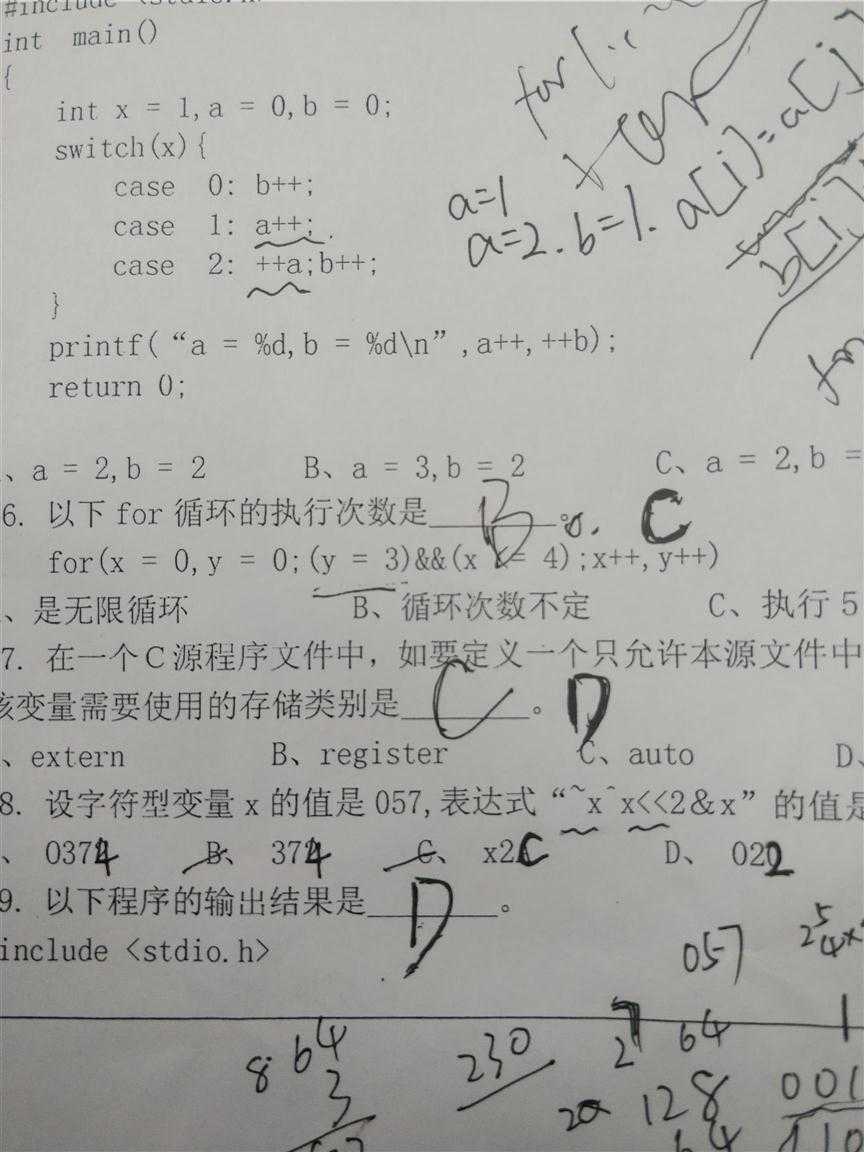 #include <stdio.h>
int main()
{
int x = 1,a = 0,b = 0;
switch(x){
case 0: b++;
case 1: a++;
case 2: ++a;b++;
}
printf(“a = %d,b = %d\n”,a++,++b);
return 0;
for(
a=1
a=2.b=1.
a[i]=a[j]
b[i]
for
、a = 2,b = 2 B、a = 3,b = 2 C、a = 2,b =
6. 以下 for 循环的执行次数是 B 。 C
for(x = 0,y = 0;(y = 3)&&(x <= 4);x++,y++)
、是无限循环 B、循环次数不定 C、执行 5
7. 在一个C源程序文件中，如要定义一个只允许本源文件中
该变量需要使用的存储类别是 C 。 D
、extern B、register C、auto D、
8. 设字符型变量 x 的值是 057,表达式“~x^x<<2&x”的值是
、 0374 B、 374 C、 x2C D、 022
9. 以下程序的输出结果是 D 。
include <stdio.h>
057
8 64 230 27 64 1
3 20 128 001
64 110